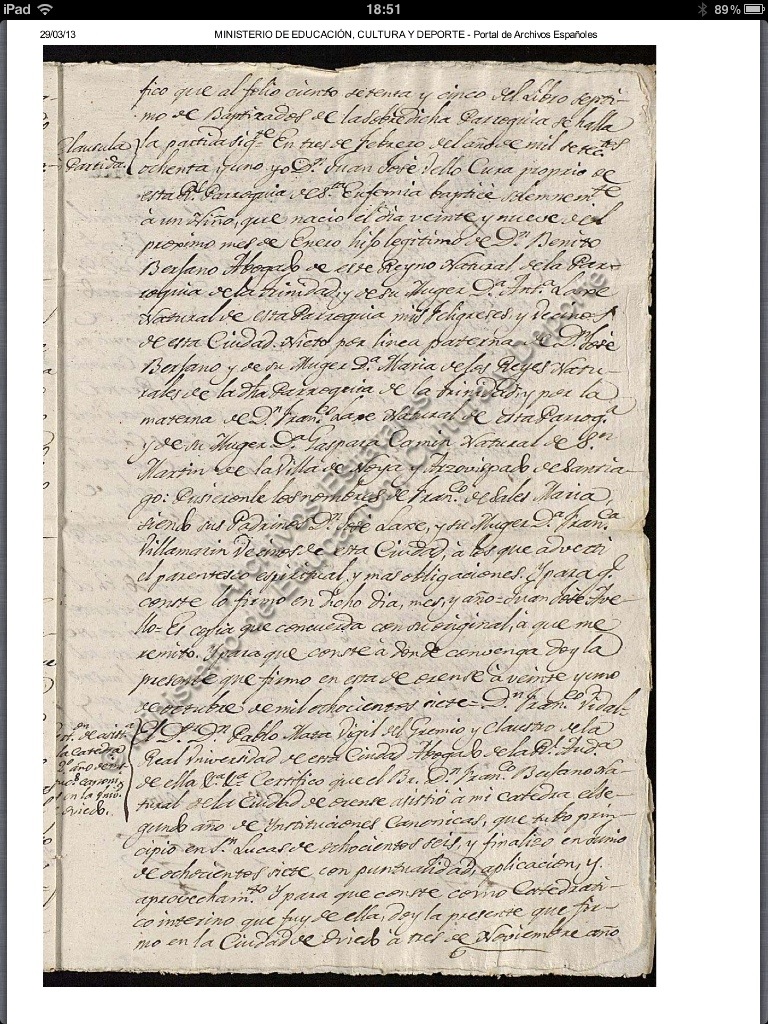 iPad 18:51 89%
29/03/13 MINISTERIO DE EDUCACIÓN, CULTURA Y DEPORTE - Portal de Archivos Españoles
fico que al folio ciento setenta y cinco del Libro septi-
mo de Baptizados de la sobredicha Parroquia se halla
Clausula
Partida.
la partida sigte. En tres de febrero del año de mil setectos
ochenta y uno, yo Dn. Juan José Vello Cura proprio de
esta Rl. Parroquia de Sta. Eufemia baptice solemnemte
à un Niño, que nacio el dia veinte y nueve del
proximo mes de Enero hijo legitimo de Dn. Benito
Bersano Abogado de este Reyno Natural de la Par-
roquia de la trinidad, y de su Muger Da. Anta. Laxe
Natural de esta Parroquia mis feligreses y vecinos
de esta Ciudad. Nieto por linea paterna de Dn. José
Bersano y de su Muger Da. Maria de los Reyes Natu-
rales de la dha Parroquia de la trinidad, y por la
materna de Dn. Franco. Laxe Natural de esta Parroqa.
y de su Muger Da. Gaspara Camin Natural de Sn.
Martin de la Villa de Noya y Arzovispado de Santia-
go: Pusieronle los nombres de Franco. de Sales Maria,
siendo sus Padrinos Dn. José Laxe, y su Muger Da. Franca.
Villamarin Vecinos de esta Ciudad, à los que adverti
el parentesco espiritual, y mas obligaciones. Y para q.
conste lo firmo en dicho dia, mes, y año = Juan José Ve-
llo = Es copia que concuerda con su original, à que me
remito. Y para que conste à donde convenga doy la
presente que firmo en esta de orense à veinte y uno
de octubre de mil ochocientos siete = Dn. Franco. Vidal =
de asista.
la catedra
2º año de
en la Univd.
Oviedo.
El Dr. Dn. Pablo Mata Vigil del Gremio y claustro de la
Real Universidad de esta Ciudad Abogado de la Rl. Auda.
de ella Certifico que el Br. Dn. Franco. Bersano Na-
tural de la Ciudad de orense asistió à mi catedra el se-
gundo año de Instituciones Canonicas, que tubo prin-
cipio en Sn. Lucas de ochocientos seis, y finalizo en Junio
de ochocientos siete con puntualidad, aplicacion, y
aprovechamto. Y para que conste como Catedrati-
co interino que fuy de ella, doy la presente que fir-
mo en la Ciudad de Oviedo à tres de Noviembre año
Archivos Estatales
Ministerio de Educación, Cultura y Deporte